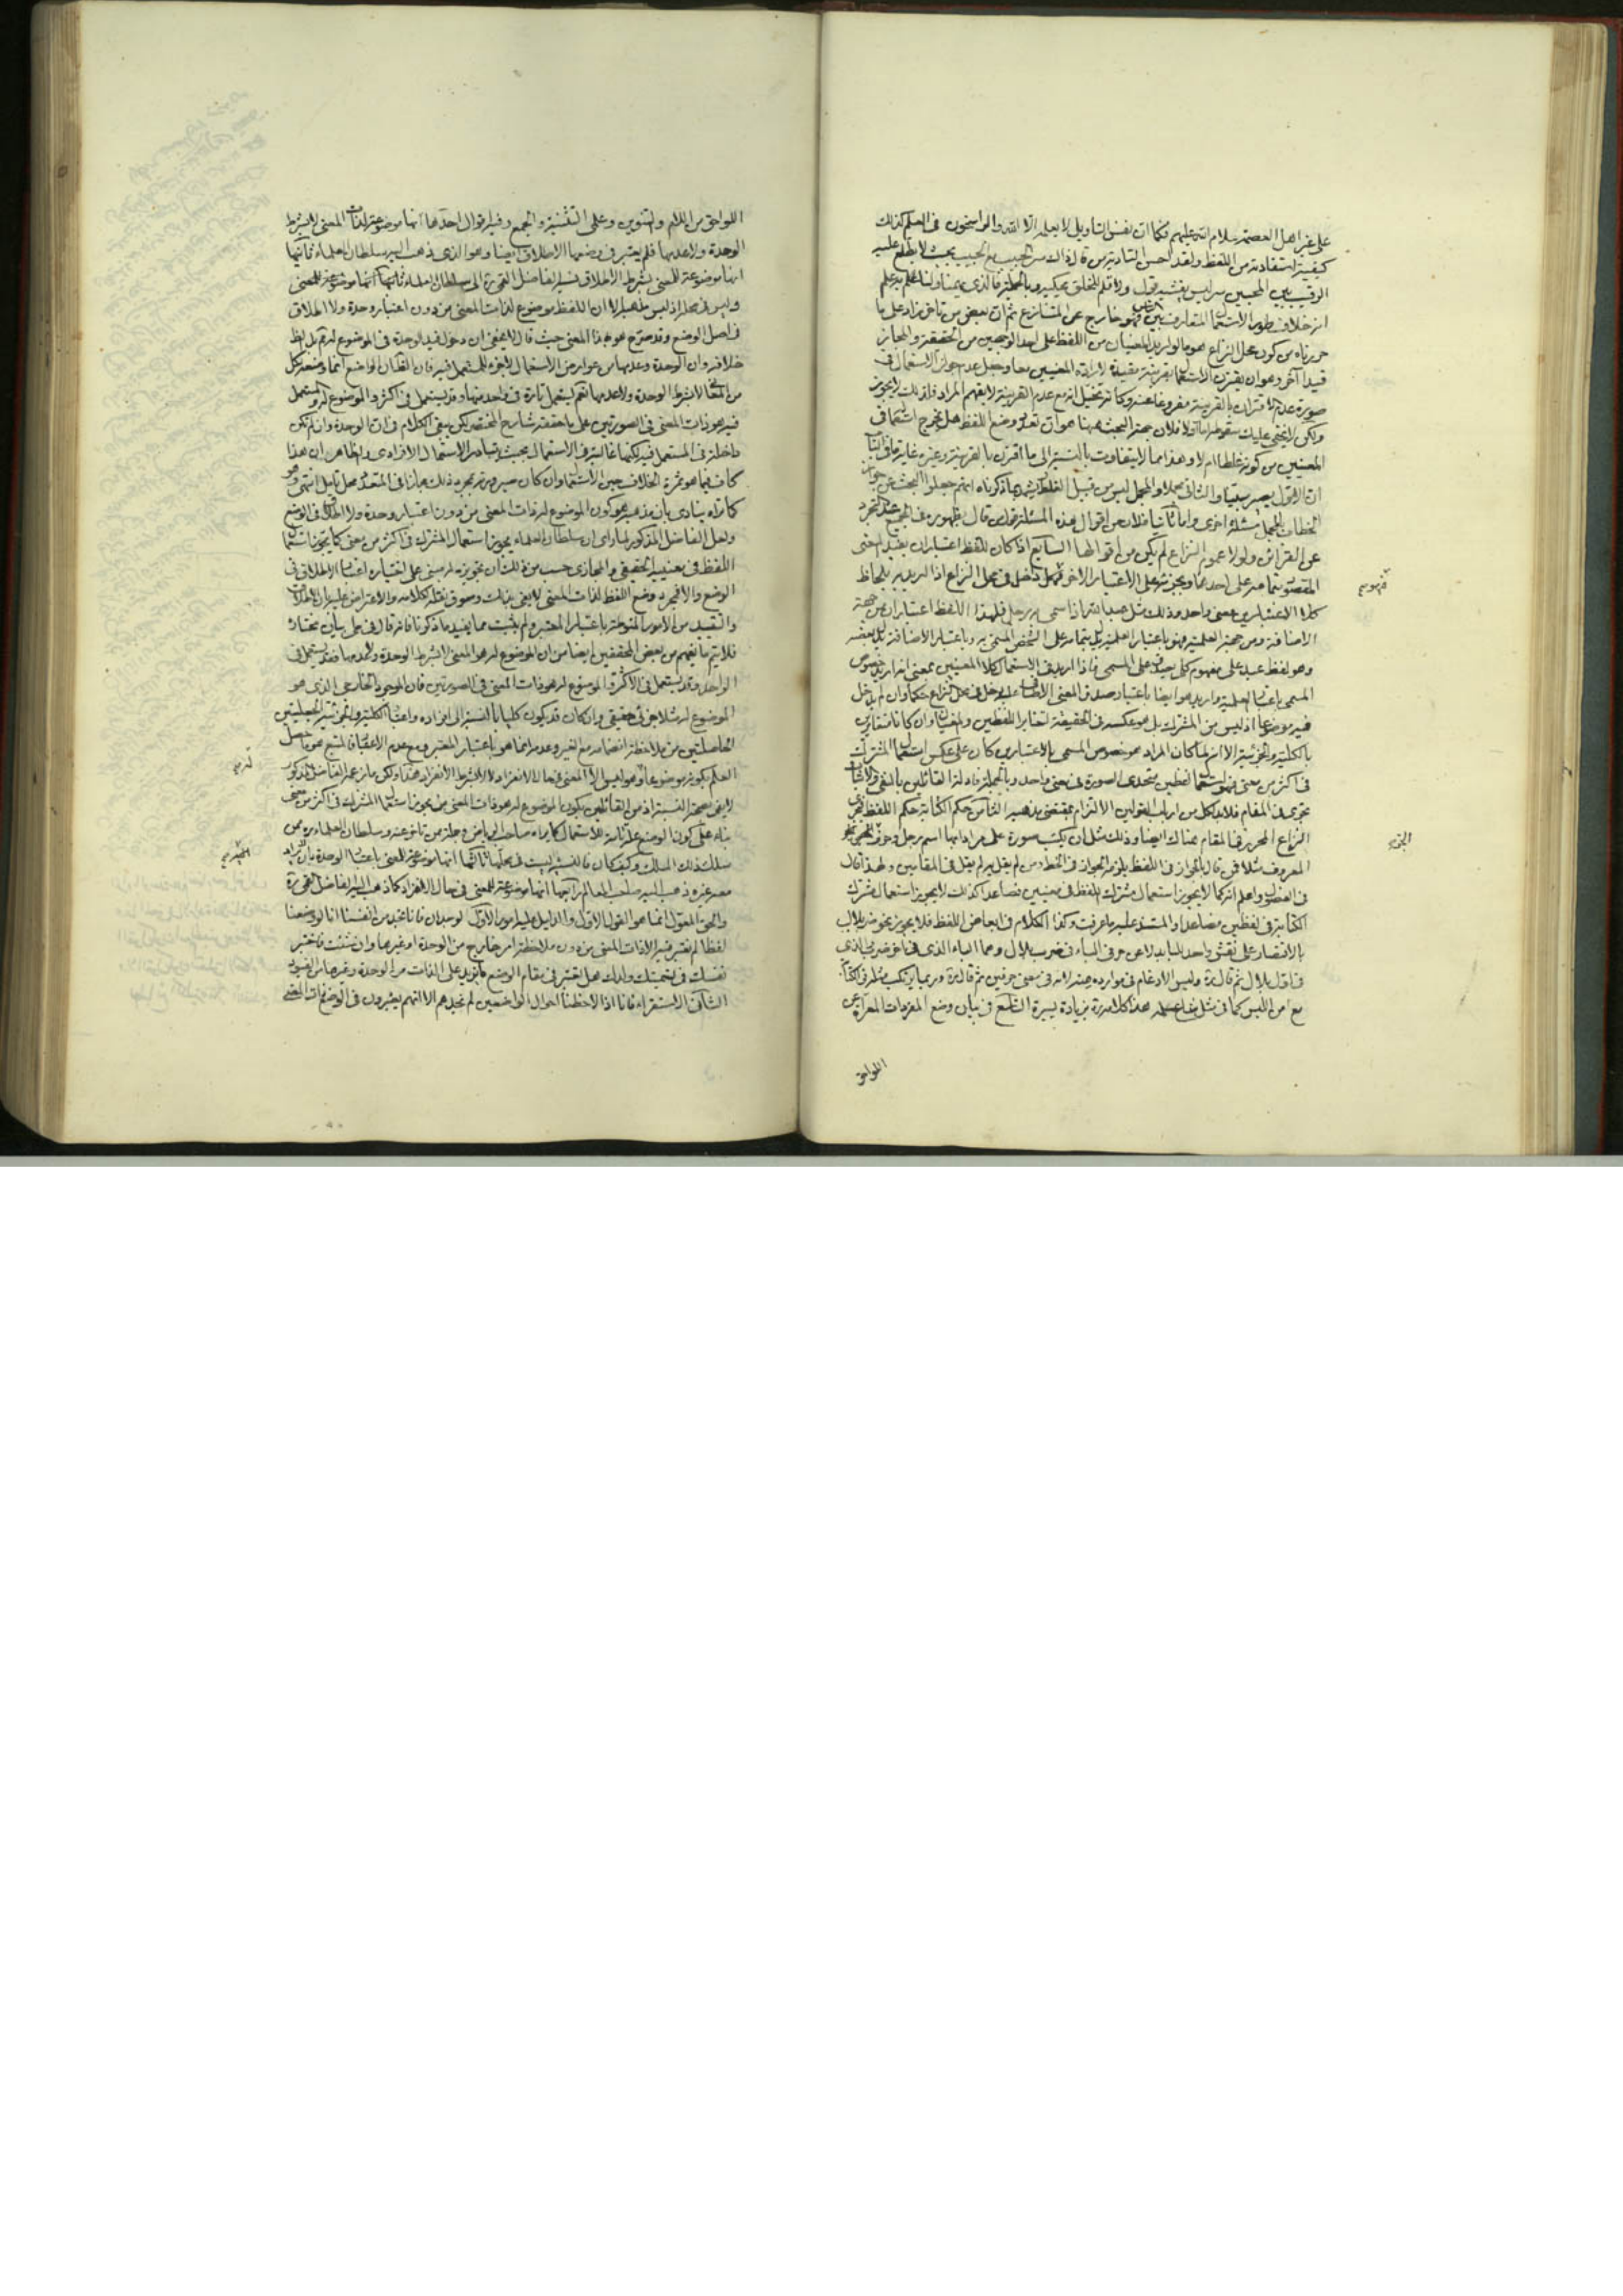 على غير اهل العصمة سلام الله عليهم فكما ان نفس التأويل لا يعلمه الا الله والراسخون في العلم كذلك
كيفية استفادته من اللفظ ولقد احسن التادية من قال ذلك سر الحبيب مع الحبيب بحيث لا يطلع عليه
الرقيب بين المحبين سر ليس يفشيه قول ولا قلم للخلق يحكيه وبالجملة فالذي يمينا ولنا العلم به علم
انه خلاف طور الاستعمال المتعارف بين فهو خارج عن المتنازع ثم ان بعض من تاخر زاد على ما
حررناه من كون محل النزاع هو ما لو اريد المعنيان من اللفظ على احد الوجهين من الحقيقة والمجاز
قيدا آخر وهو ان يقترن الاستعمال بقرينة مفيدة لارادة المعنيين معا وجعل عدم جواز الاستعمال في
صورة عدم الاقتران بالقرينة مفروغا عنه وكانه تخيل انه مع عدم القرينة لا يفهم المراد فلذلك لا يجوز
ولكن لا يخفى عليك سقوطه اما اولا فلان جهة البحث ههنا هو ان تعدد وضع اللفظ هل يخرج استعماله في
المعنيين من كونه غلطا ام لا وهذا مما لا يتفاوت بالنسبة الى ما اقترن بالقرينة وغيره غاية ما في الباب
ان الاول يصير مبينا والثاني مجملا والمجمل ليس من قبيل الغلط يشهد بما ذكرناه انهم جعلوا البحث عن جواز
الخطاب بالمجمل مسئلة اخرى واما ثانيا فلان من اقوال هذه المسئلة قول من قال بظهوره في الجميع عند التجرد
عن القرائن ولولا عموم النزاع لم يكن من اقوالها السابع اذا كان للفظ اعتباران يفيد المعنى
المقصود بتمامه على احدهما وبجزئه على الاعتبار الاخر فهل داخل في محل النزاع اذا اريد به بلحاظ
كلا الاعتبارين معنى واحد وذلك مثل عبد الله اذا سمي به رجل فلهذا اللفظ اعتباران من جهة
الاضافة ومن جهة العلمية فهو باعتبار العلمية يدل بتمامه على الشخص المسمى به وباعتبار الاضافة يدل بعضه
وهو لفظ عبد على مفهوم كلي يصدق على المسمى فاذا اريد في الاستعمال كلا المعنيين بمعنى انه اريد خصوص
المسمى باعتبار العلمية واريد هو ايضا باعتبار صدق المعنى الاضافي عليه دخل في محل النزاع حكما وان لم يدخل
فيه موضوعا اذ ليس من المشترك بل هو عكسه في الحقيقة لتغاير اللفظين والمعنيان وان كانا متغايرين
بالكلية والجزئية الا انه لما كان المراد هو خصوص المسمى بالاعتبارين كان على عكس استعمال المشترك
في اكثر من معنى فهو استعمال لفظين متحدي الصورة في معنى واحد وبالجملة فادلة القائلين بالنفي والاثبات
تجري في المقام فلا بد لكل من ارباب القولين الالتزام بمقتضى مذهبه الثامن حكم الكتابة حكم اللفظ فيجري
النزاع المحرر في المقام هناك ايضا وذلك مثل ان يكتب صورة على مرادا بها اسم رجل وحرف الجر
المعروف مثلا فمن قال بالجواز في اللفظ يلزمه الجواز في الخط ومن لم يقل به لم يقل في المقامين ولهذا قال
في الفصول واعلم انه كما لا يجوز استعمال مشترك اللفظ في معنيين فصاعدا كذلك لا يجوز استعمال مشترك
الكتابة في لفظين فصاعدا والمستند عليه ما عرفت وكذا الكلام في ابعاض اللفظ فلا يجوز نحو ضرب بلال
بالاقتصار على نقش واحد للباء بدلا عن حرفي الباء في ضرب بلال وهما الباء الذي في آخر ضرب والذي
في اول بلال ثم قال ره وليس الادغام في موارده منه لانه في معنى حرفين ثم قال ره وربما يرتكب مثله في الكتابة
مع امن اللبس كما في مثل هذا كلامه ره بزيادة يسيرة التاسع في بيان وضع المفردات المعراة عن
اللواحق
اللواحق من اللام والتنوين وعلى التثنية والجمع وفيه اقوال احدها انها موضوعة لذات المعنى لا بشرط
الوحدة ولا عدمها فلم يعتبر في وضعها الاطلاق ايضا وهو الذي ذهب اليه سلطان العلماء ثانيها
انها موضوعة للمعنى بشرط الاطلاق نسبه الفاضل القمي ره الى سلطان العلماء
وليس في محله اذ ليس مذهبه الا ان اللفظ موضوع لذات المعنى من دون اعتبار وحدة ولا اطلاق
في اصل الوضع وقد صرح هو بهذا المعنى حيث قال لا يخفى ان دخول قيد الوحدة في الموضوع له مم بل الظ
خلافه وان الوحدة وعدمها من عوارض الاستعمال لا يغير المستعمل فيه فان الظ ان الواضع انما وضعه لكل
من المعاني لا بشرط الوحدة ولا عدمها لكنه يستعمل تارة في واحد منها وقد يستعمل في اكثر والموضوع له والمستعمل
فيه هو ذات المعنى في الصورتين على ما حققه شارح المختصر لكن يبقى الكلام في ان الوحدة وان لم تكن
داخلة في المستعمل فيه لكنها غالبة في الاستعمال بحيث يتبادر الاستعمال الافرادي والظاهر ان هذا
كاف فيما هو ثمرة الخلاف حين الاستعمال وان كان صيرورته بمجرد ذلك مجازا في المتعدد محل تامل انتهى وهو
كما تراه ينادي بان مذهبه هو كون الموضوع له ذات المعنى من دون اعتبار وحدة ولا اطلاق في الوضع
ولعل الفاضل المذكور لما راى ان سلطان العلماء يجوز استعمال المشترك في اكثر من معنى كما يجوز استعمال
اللفظ في معنييه الحقيقي والمجازي حسب من ذلك ان تجويزه له مبني على اختياره اعتبار الاطلاق في
الوضع والا فمجرد وضع اللفظ لذات المعنى لا يفي بذلك وسوق نقله كلامه والاعتراض عليه بان الاطلاق
والتقييد من الامور المنوطة باعتبار المعتبر ولم يثبت مما يفيد ما ذكرنا فانه قال في محل بيان مختاره
فلا يتم ما يفهم من بعض المحققين ايضا من ان الموضوع له هو المعنى لا بشرط الوحدة ولا عدمها فقد يستعمل في
الواحد وقد يستعمل في الاكثر والموضوع له هو ذات المعنى في الصورتين فان الموجود الخارجي الذي هو
الموضوع له مثلا جزئي حقيقي وان كان قد يكون كليا بالنسبة الى افراده واعتبار الكلية والجزئية الجعليتين
الحاصلتين من ملاحظة انضمامه مع الغير وعدمه انما هو باعتبار المعتبر ومع عدم الاعتبار فالمتبع هو ما حصل
العلم بكونه موضوعا له وهو ليس الا المعنى في حال الانفراد لا لا بشرط الانفراد هذا ولكن ما زعمه الفاضل المذكور
بناء على كون الوضع علة تامة للاستعمال كما يراه صاحب الرياض وجملة من تاخر عنه وسلطان العلماء ره ممن
سلك ذلك المسلك وكيف كان فالنسبة ليست في محلها ثالثها انها موضوعة للمعنى باعتبار الوحدة بان يراد
معه غيره ذهب اليه صاحب المعالم رابعها انها موضوعة للمعنى في حال الانفراد كما ذهب اليه الفاضل القمي ره
والحق المعول انما هو القول الاول والدليل عليه امور الاول الوجدان فانا نجد من انفسنا انا لو وضعنا
لفظا لم نعتبر فيه الا ذات المعنى من دون ملاحظة امر خارج من الوحدة او غيرها وان شئت فاختبر
نفسك في تسميتك ولدك هل تعتبر في مقام الوضع ما يزيد على الذات من الوحدة وغيرها من القيود
الثاني الاستقراء فانا اذا لاحظنا احوال الواضعين لم نجدهم الا انهم يعتبرون في الوضع ذات المعنى